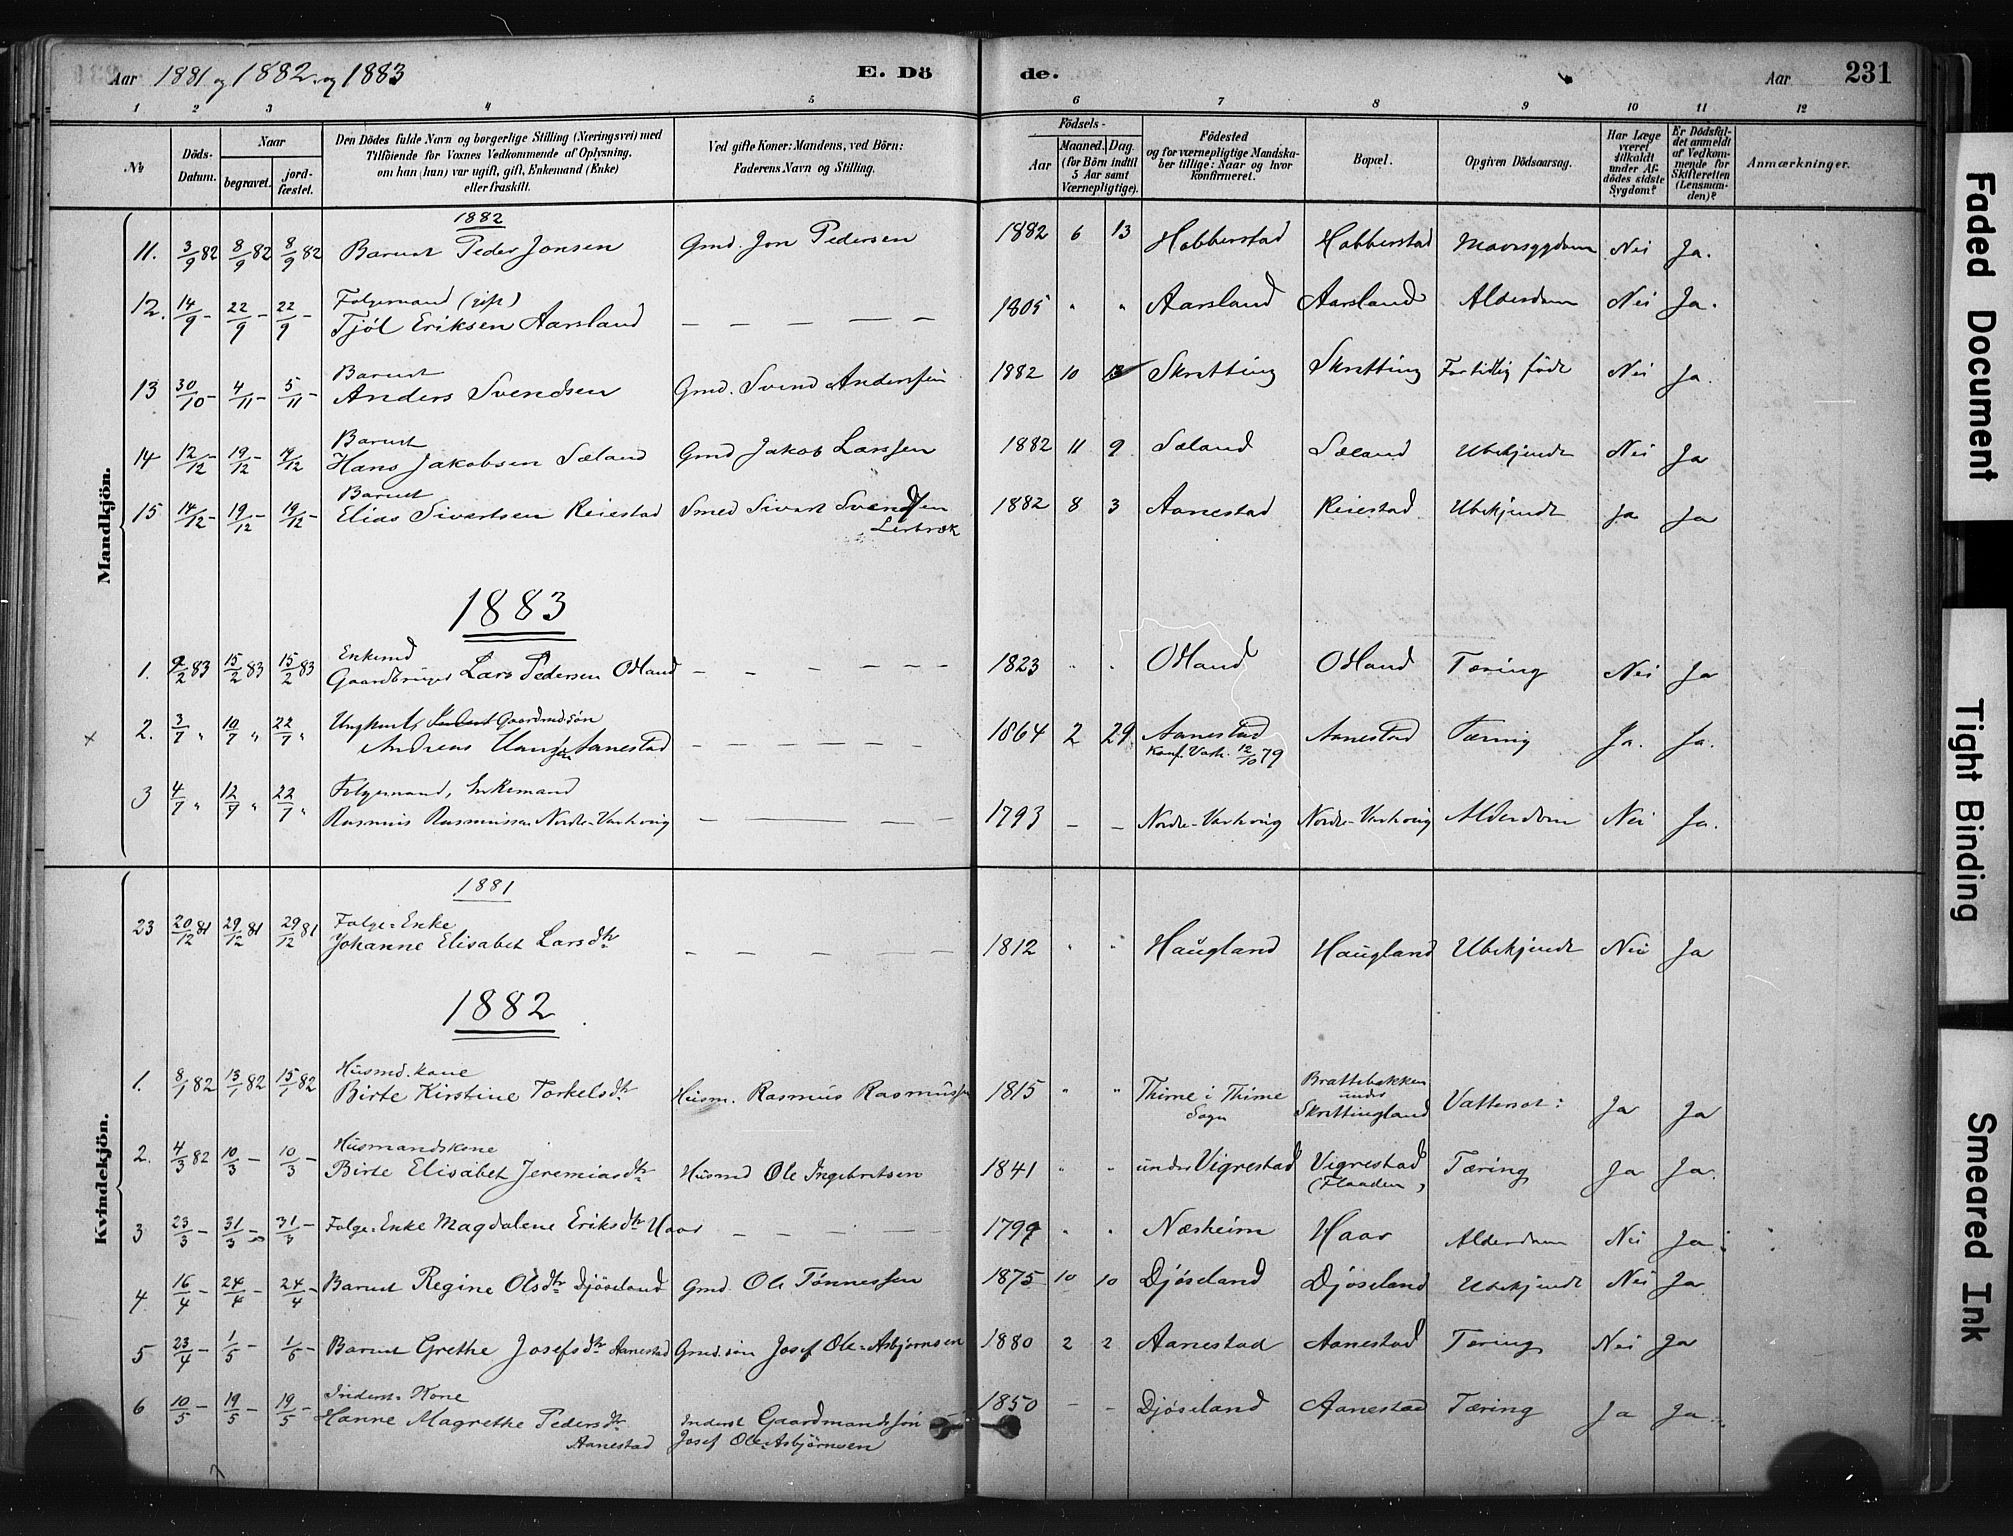 Aar 1881 og 1882 og 1883 E. Dö de. Aar 231
1 2 3 4 5 6 7 8 9 10 11 12
No Döds-Datum. Naar begravet. jord-fæstet. Den Dödes fulde Navn og borgerlige Stilling (Næringsvei) med Tilföiende for Voxnes Vedkommende af Oplysning, om han (hun) var ugift, gift, Enkemand (Enke) eller fraskilt. Ved gifte Koner: Mandens, ved Börn: Faderens Navn og Stilling. Födsels- Aar Maaned. Dag. (for Börn indtil 5 Aar samt Værnepligtige). Födested og for værnepligtige Mandskaber tillige: Naar og hvor konfirmeret. Bopæl. Opgiven Dödsaarsag. Har Læge været tilkaldt under Afdödes sidste Sygdom? Er Dödsfaldet anmeldt af Vedkommende for Skifteretten (Lensmanden)? Anmærkninger.
Mandkjön.
1882
11. 3/9 82 8/9 82 8/9 82 Barnet Peder Jonsen Gmd. Jon Pedersen 1882 6 13 Hobberstad Hobberstad Mavesygdom Nei Ja.
12. 14/9 - 22/9 - 22/9 - Folgemand (gift) Tjöl Eriksen Aarsland 1805 " " Aarsland Aarsland Alderdom Nei Ja.
13 30/10 - 4/11 - 5/11 - Barnet Anders Svendsen Gmd. Svend Anderssen 1882 10 Skretting Skretting For tidlig födt Nei Ja.
14 12/12 - 19/12 - 19/12 Barnet Hans Jakobsen Sæland Gmd Jakob Larssen 1882 11 9 Sæland Sæland Ubekjendt Nei Ja
15 14/12 - 19/12 - 19/12 - Barnet Elias Sivertsen Reiestad Smed Sivert Svendsen Lerbræk 1882 8 3 Aanestad Reiestad Ubekjendt Ja Ja
1883
1. 9/2 83 15/2 83 15/2 83 Enkemd Gaardbruger Lars Pedersen Odland 1823 " " Odland Odland Tæring Nei Ja
2. 3/7 " 10/7 " 22/7 " Ungkarl Gaardmdssön Andreas Hanssen Aanestad 1864 2 29 Aanestad Konf. Varh. 12/10 79 Aanestad Tæring Ja. Ja.
3 4/7 " 12/7 " 22/7 " Folgemand, Enkemand Rasmus Rasmussen Nordre-Varhoug 1793 - - Nordre-Varhoug Nordre-Varhoug Alderdom Nei Ja.
Kvindekjön.
1881
23 20/12 81 29/12 81 29/12 81 Folge-Enke Johanne Elisabet Larsdtr 1812 " " Haugland Haugland Ubekjendt Nei Ja
1882
1. 8/1 82 13/1 82 15/1 82 Husmd.kone Birte Kirstine Torkelsdtr Husm. Rasmus Rasmussen 1815 " " Thime i Thime Sogn Brattebakken under Skrettingland Vattersot: Ja Ja
2. 4/3 82 10/3 - 10/3 - Husmandskone Birte Elisabet Jeremiasdtr Husmd Ole Ingebretsen 1841 " " under Vigrestad Vigrestad (Flaaden) Tæring Ja Ja.
3 23/3 - 31/3 - 31/3 - Folge-Enke Magdalene Eriksdtr Haar 1799 " " Næsheim Haar Alderdom Nei Ja.
4 16/4 - 24/4 - 24/4 - Barnet Regine Olsdtr Djöseland Gmd. Ole Tönnessen 1875 10 10 Djöseland Djöseland Ubekjendt Nei Ja
5 23/4 - 1/5 - 1/5 - Barnet Grethe Josefsdtr Aanestad Gmd.sön Josef Ole-Asbjörnsen 1880 2 2 Aanestad Aanestad Tæring Nei Ja
6 10/5 - 19/5 - 19/5 - Inderst-Kone Hanne Magrethe Pedersdtr Aanestad Inderst Gaardmandssön Josef Ole-Asbjörnsen 1850 - - Djöseland Aanestad Tæring Ja Ja.
Faded Document
Tight Binding
Smeared Ink